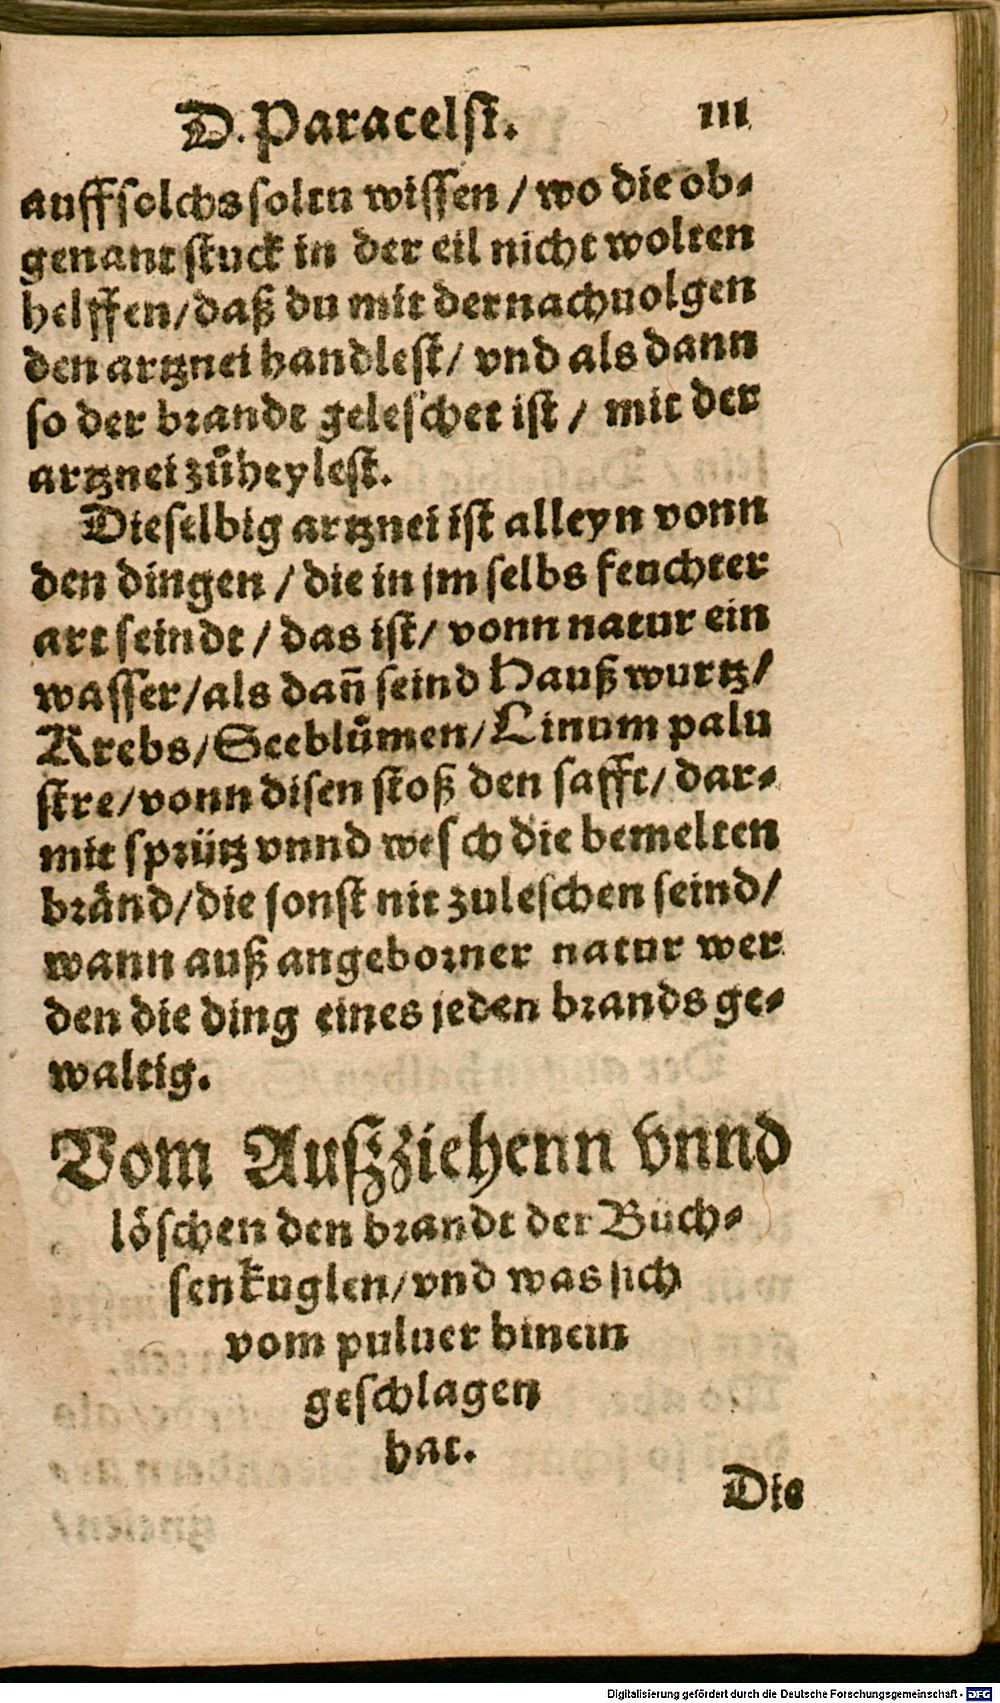 D. Paracelsi. 111
auff solchs soltu wissen / wo die ob-
genant stuck in der eil nicht wolten
helffen / daß du mit der nachuolgen
den artznei handlest / vnd als dann
so der brandt geleschet ist / mit der
artznei zůheylest.
Dieselbig artznei ist alleyn vonn
den dingen / die in jm selbs feuchter
art seindt / das ist / vonn natur ein
wasser / als dañ seind Haußwurtz /
Krebs / Seeblůmen / Linum palu
stre / vonn disen stoß den safft / dar-
mit sprütz vnnd wesch die bemelten
bränd / die sonst nit zuleschen seind /
wann auß angeborner natur wer
den die ding eines jeden brands ge-
waltig.
Vom Außziehenn vnnd
löschen den brandt der Büch-
senkuglen / vnd was sich
vom puluer hinein
geschlagen
hat.
Die
Digitalisierung gefördert durch die Deutsche Forschungsgemeinschaft - DFG